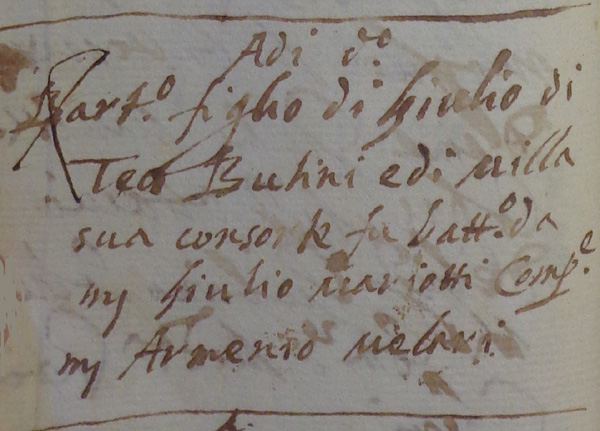 Adi d.o
Bart.o figlio di Giulio di
Teo Buhini e di villa
sua consorte fu batt.o da
mj Giulio Mariotti Comp.e
mj Armenio